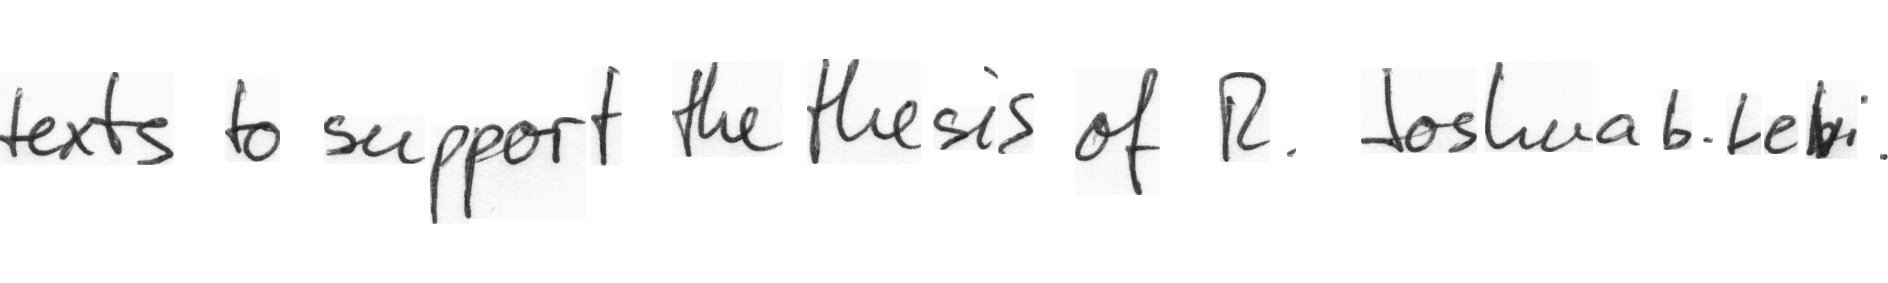 texts to support the thesis of R. Joshua b. Lebi.